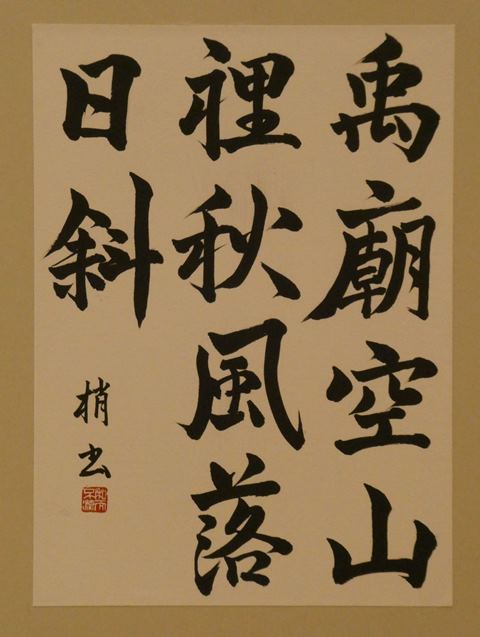 禹廟空山
裡秋風落
日斜
梢书